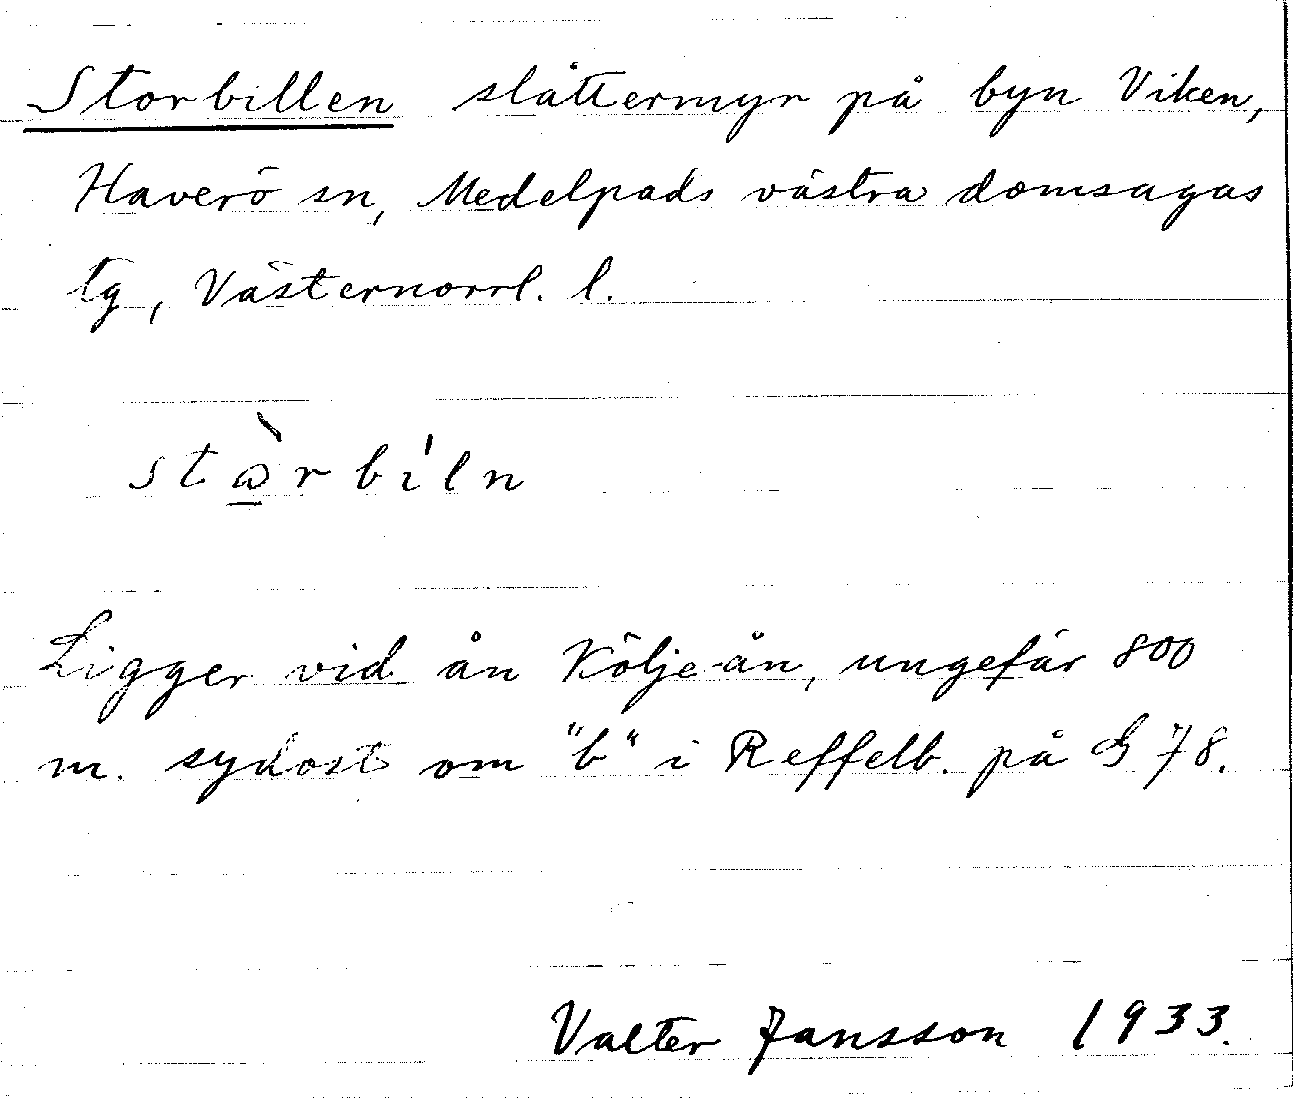 Storbillen slåttermyr på byn Viken,
Haverö sn, Medelpads västra domsagas
tg, Västernorrl. l.
stὼ̲rbi̍ln
Ligger vid ån Kölje-ån, ungefär 800
m. sydost om "b" i Reffelb. på G 78.
Valter Jansson 1933.